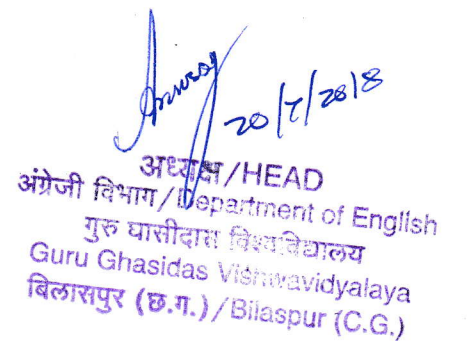 Anurag
20/7/2018
अध्यक्ष/HEAD
अंग्रेजी विभाग/Department of English
गुरु घासीदास विश्वविद्यालय
Guru Ghasidas Vishwavidyalaya
बिलासपुर (छ.ग.)/Bilaspur (C.G.)